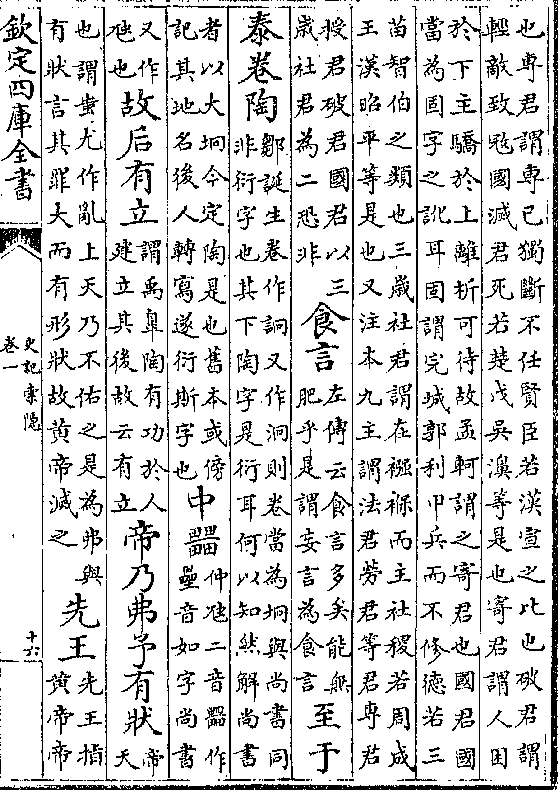 也専君謂専己獨斷不任賢臣若漢宣之比也破君謂
輕敵致冦國滅君死若楚戊吳濞等是也寄君謂人困
於下主驕於上離折可待故孟軻謂之寄君也國君國
當為固字之訛耳固謂完城郭利甲兵而不修德若三
苗智伯之類也三歳社君謂在襁褓而主社稷若周成
王漢昭平等是也又注本九主謂法君勞君等君專君
授君破君國君以三
歳社君為二恐非
食言
左傳云食言多矣能無
肥乎是謂妄言為食言
至于
泰卷陶
鄒誕生卷作詗又作泂則卷當為坰與尚書同
非衍字也其下陶字是衍耳何以知然解尚書
者以大坰今定陶是也舊本或傍
記其地名後人轉寫遂衍斯字也
中𤳳
仲虺二音𤳳作
壘音如字尚書
又作
虺也
故后有立
謂禹臯陶有功於人
建立其後故云有立
帝乃弗予有狀
帝
天
也謂蚩尤作亂上天乃不佑之是為弗與
有狀言其罪大而有形狀故黃帝滅之
先王
先王指
黃帝帝
欽定四庫全書
史記索隱
卷一
十六